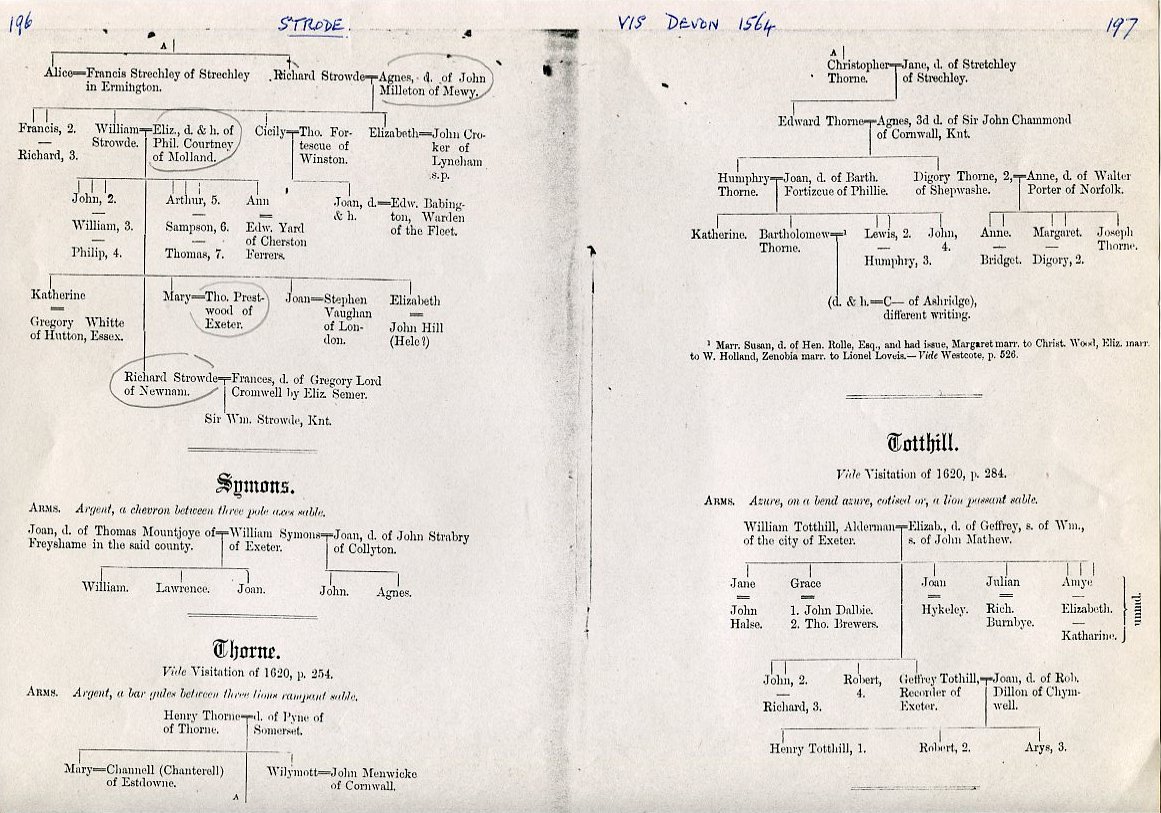 196
STRODE.
A
Alice=Francis Strechley of Strechley
in Ermington.
Richard Strowde=Agnes, d. of John
Milleton of Mewy.
Francis, 2.
—
Richard, 3.
William=Eliz., d. & h. of
Strowde.
Phil. Courtney
of Molland.
Cicily=Tho. For-
tescue of
Winston.
Elizabeth=John Cro-
ker of
Lyneham
s.p.
John, 2.
—
William, 3.
—
Philip, 4.
Arthur, 5.
—
Sampson, 6.
—
Thomas, 7.
Ann
=
Edw. Yard
of Cherston
Ferrers.
Joan, d.=Edw. Babing-
& h.
ton, Warden
of the Fleet.
Katherine
=
Gregory Whitte
of Hutton, Essex.
Mary=Tho. Prest-
wood of
Exeter.
Joan=Stephen
Vaughan
of Lon-
don.
Elizabeth
=
John Hill
(Hele?)
Richard Strowde=Frances, d. of Gregory Lord
of Newnam.
Cromwell by Eliz. Semer.
Sir Wm. Strowde, Knt.
Symons.
ARMS. Argent, a chevron between three pole axes sable.
Joan, d. of Thomas Mountjoye of=William Symons=Joan, d. of John Strabry
Freyshame in the said county.
of Exeter.
of Collyton.
William.
Lawrence.
Joan.
John.
Agnes.
Thorne.
Vide Visitation of 1620, p. 254.
ARMS. Argent, a bar gules between three lions rampant sable.
Henry Thorne=d. of Pyne of
of Thorne.
Somerset.
Mary=Channell (Chanterell)
of Estdowne.
Wilymott=John Menwicke
of Cornwall.
A
VIS DEVON 1564
197
A
Christopher=Jane, d. of Stretchley
Thorne.
of Strechley.
Edward Thorne=Agnes, 3d d. of Sir John Chammond
of Cornwall, Knt.
Humphry=Joan, d. of Barth.
Thorne.
Fortizcue of Phillie.
Digory Thorne, 2,=Anne, d. of Walter
of Shepwashe.
Porter of Norfolk.
Katherine.
Bartholomew=¹
Thorne.
Lewis, 2.
—
Humphry, 3.
John,
4.
Anne.
—
Bridget.
Margaret.
—
Digory, 2.
Joseph
Thorne.
(d. & h.=C— of Ashridge),
different writing.
¹ Marr. Susan, d. of Hen. Rolle, Esq., and had issue, Margaret marr. to Christ. Wood, Eliz. marr.
to W. Holland, Zenobia marr. to Lionel Loveis.—Vide Westcote, p. 526.
Totthill.
Vide Visitation of 1620, p. 284.
ARMS. Azure, on a bend azure, cotised or, a lion passant sable.
William Totthill, Alderman=Elizab., d. of Geffrey, s. of Wm.,
of the city of Exeter.
s. of John Mathew.
Jane
=
John
Halse.
Grace
=
1. John Dalbie.
2. Tho. Brewers.
Joan
=
Hykeley.
Julian
=
Rich.
Burnbye.
Amye
—
Elizabeth.
—
Katharine.
unmd.
John, 2.
—
Richard, 3.
Robert,
4.
Geffrey Tothill,=Joan, d. of Rob.
Recorder of
Exeter.
Dillon of Chym-
well.
Henry Totthill, 1.
Robert, 2.
Arys, 3.